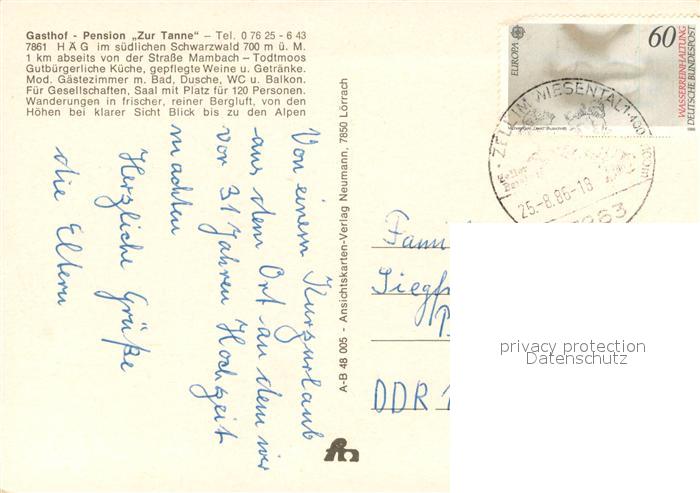 Gasthof - Pension „Zur Tanne“ – Tel. 0 76 25 - 6 43
7861 HÄG im südlichen Schwarzwald 700 m ü. M.
1 km abseits von der Straße Mambach – Todtmoos
Gutbürgerliche Küche, gepflegte Weine u. Getränke.
Mod. Gästezimmer m. Bad, Dusche, WC u. Balkon.
Für Gesellschaften, Saal mit Platz für 120 Personen.
Wanderungen in frischer, reiner Bergluft, von den
Höhen bei klarer Sicht Blick bis zu den Alpen
Von einem Kurzurlaub
aus dem Ort an dem wir
vor 31 Jahren Hochzeit
machten
Herzliche Grüße
die Eltern
A-B 48 005 - Ansichtskarten-Verlag Neumann, 7850 Lörrach
EUROPA
60
WASSERREINHALTUNG
DEUTSCHE BUNDESPOST
ZELL IM WIESENTAL
25.-8.86-18
Fami
Siegf
DDR 1
privacy protection
Datenschutz